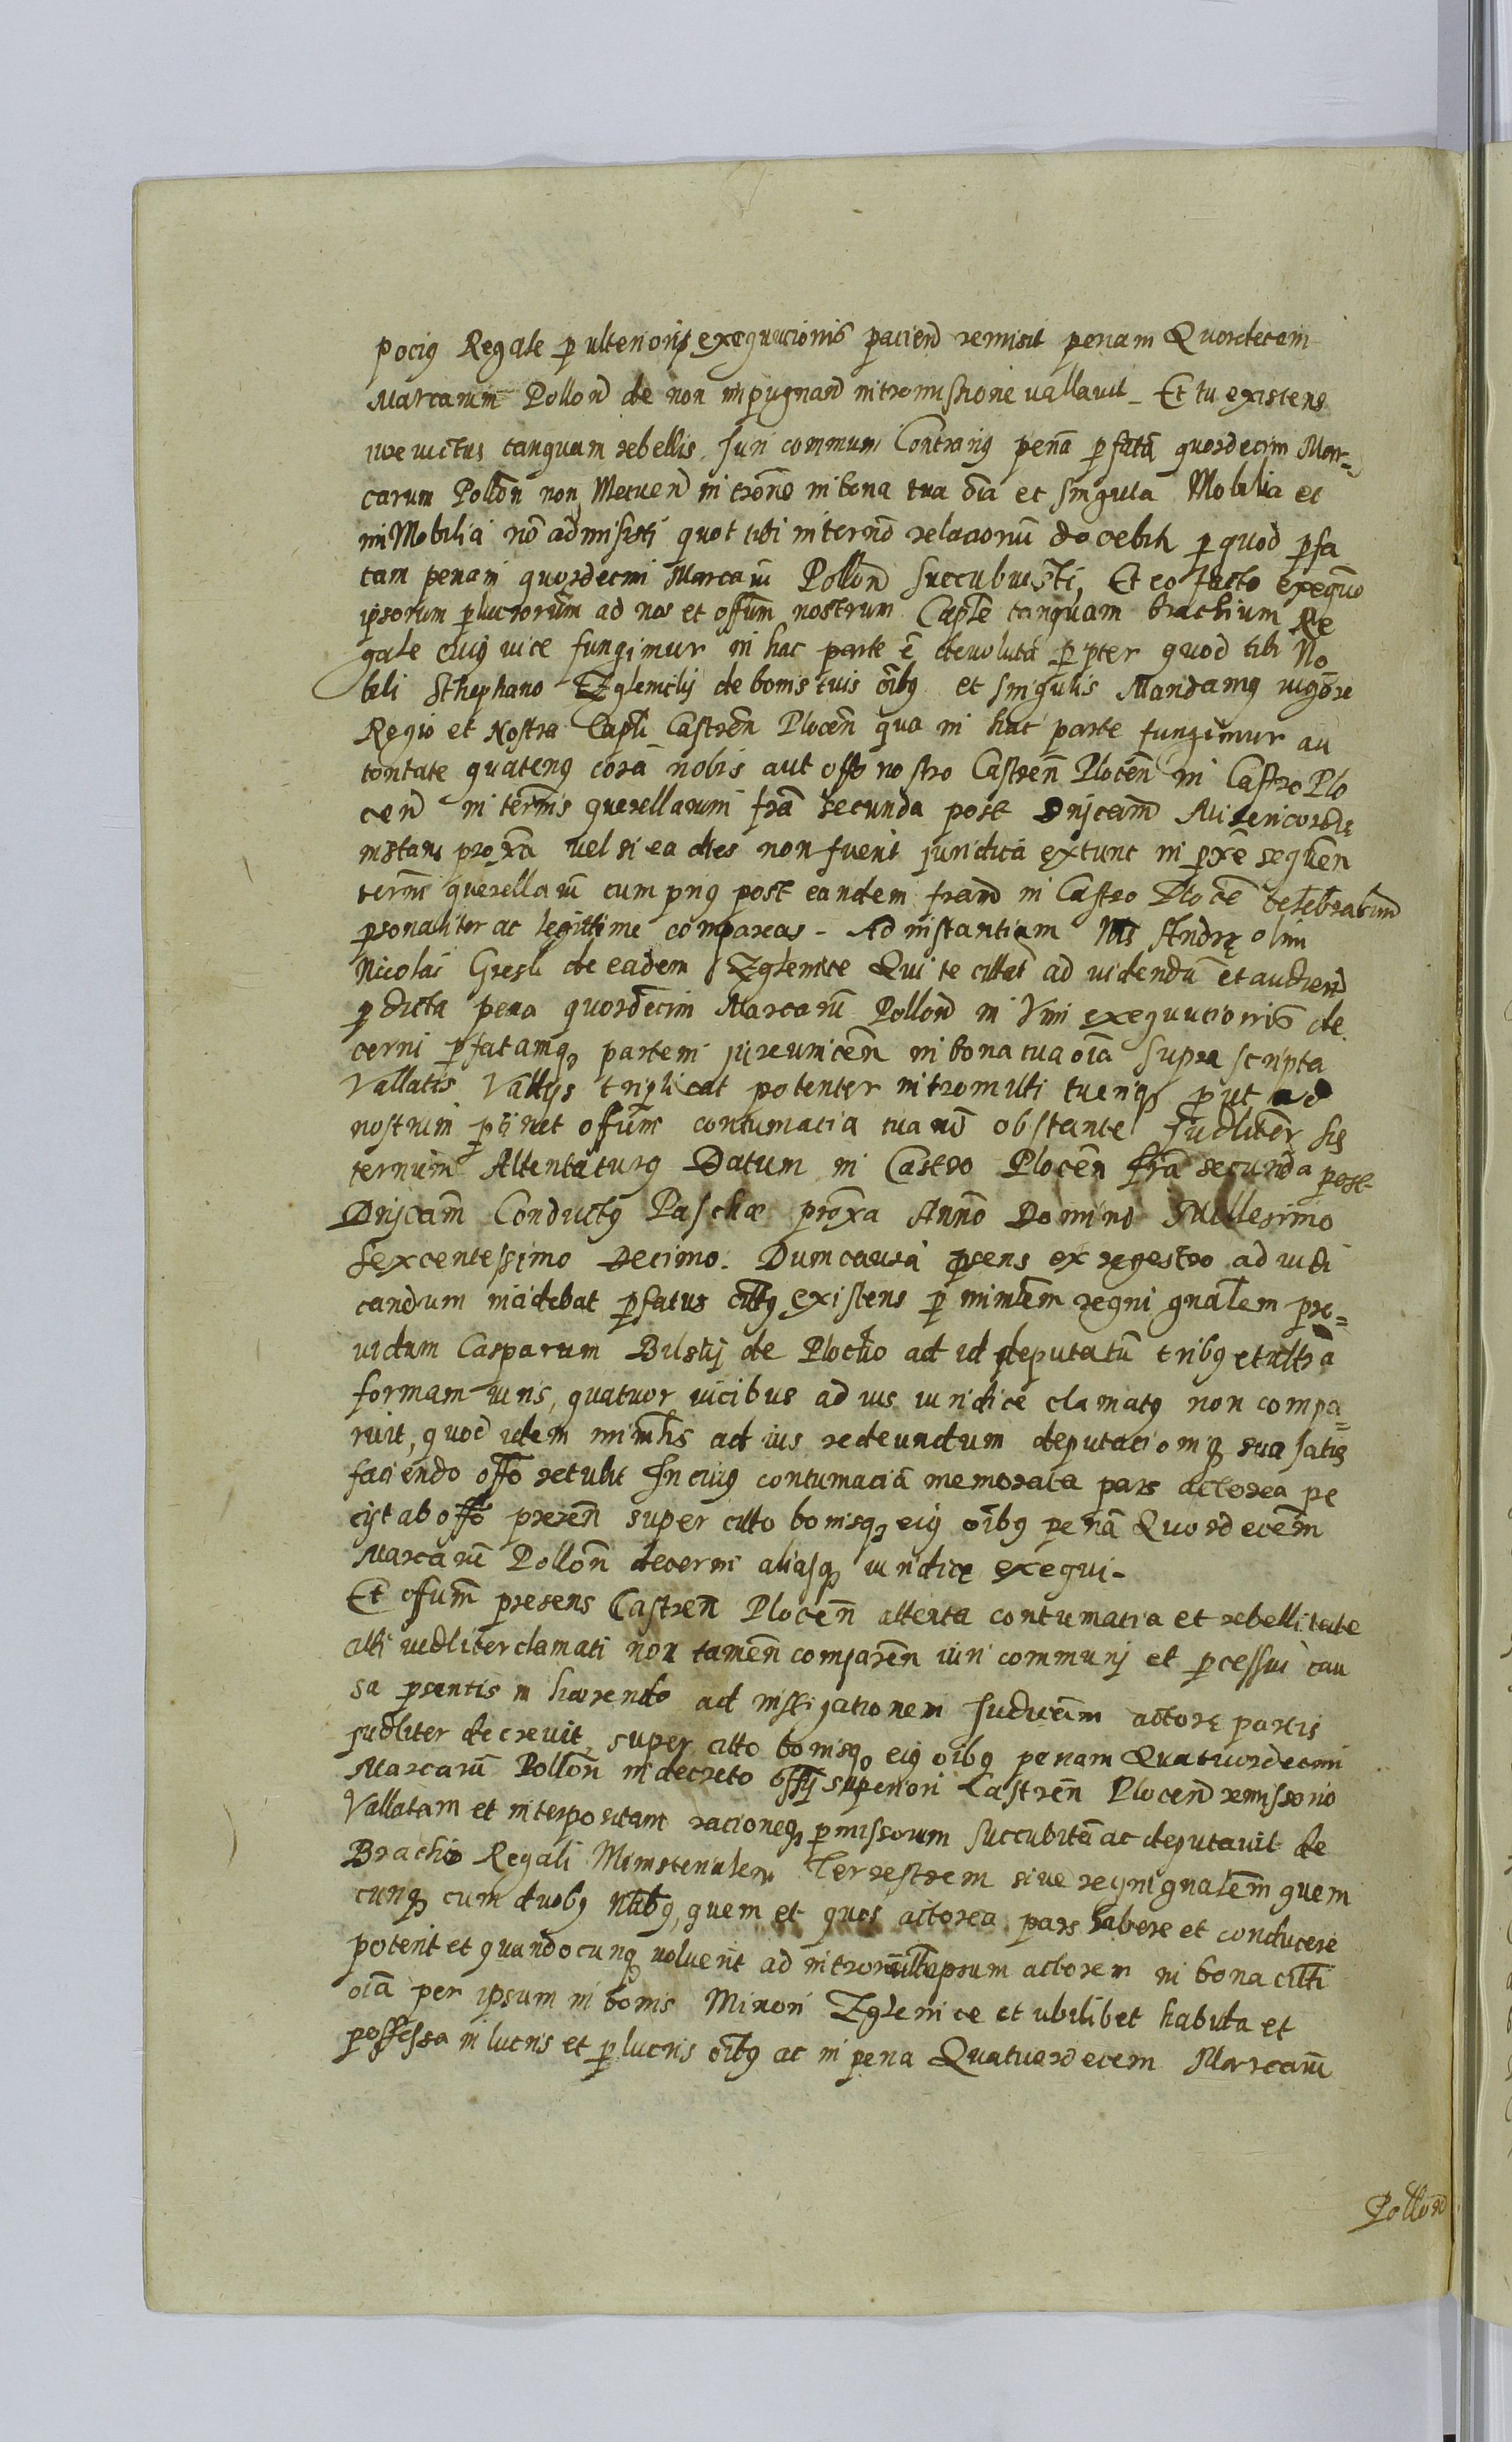 pocig Regale p ulterioris exequucionis faciend remisit penam Quordecem
Marcarum Pollond de non impugnand intromissione vallavit _ Et tu existens
iurevictus tanquam rebellis Juri communi Contrarig penã pfatã quordecim Mar=
carum Pollon non Metuend introne in bona tua oia et singula Mobilia et
im Mobilia nõ admisisti quot tibi in termo relacionu docebit p quod pfa
tam penam quordecim Marcarũ Pollond Succubuisti, Et eo facto exequo
ipsorum plucrorum ad nos et offum nostrum Captle tanquam brachium Re
gale cuig vice fungimur in hac parte ẽ devoluta ppter quod tibi No
bili Sthephano Zglenicky de bonis tuis oibg et singulis Mandamg vigore
Regio et Nostra Captli Castren Plocen qua in hac parte fungimur au
toritate quateng corã nobis aut offo nostro Castren Plocen in Castro Plo
cen in termis querellarum fra secunda post Dnicam Misericordię
instan proxa vel si ea dies non fuerit juridica extunc in pxe sequen
termis querellarũ cum prig post eandem friam in Castro Plocen celebrabund
psonaliter ac legittime compareas - Ad instantiam Nlis Andrę olim
Nicolai Gresli de eadem Zglenice Qui te cittat ad videndũ et audiend
pdicta pena quordecim Marcarũ Pollond in Vim exequucionis de
cerni pfatamq partem jurevincen in bona tua oia supra scripta
Vallatis Vallys triplicat potenter intromitti tueriq put ad
nostrum ptinet offum contumacia tua nõ obstante Judliter sis
ternum Attentaturg Datum in Castro Plocen fra secunda post
Dnicam Conductg Paschæ proxa Anno Domino Millesimo
Sexcentessimo Decimo. Dum causa psens ex regestro ad iudi
candum incidebat pfatus cittg existens p mintlem regni gnalem pro=
vidum Casparum Bilskij de Plocko ad id deputatũ tribg et ultra
formam iuris, quatuor vicibus ad ius iuridice clamatg non compa=
ruit, quod idem mintlis ad ius redeundum deputacioniq sua satis
faciendo offo retulit In cuig contumaciã memorata pars actorea pe
cyt ab offo presen super citto bonisq eig oibg penã Quordecem
Marcarũ Pollon decerni aliasq iuridice exequi -
Et offum presens Castren Plocen attenta contumatia et rebellitate
citti iudliter clamati non tamen comparen iuri communi et pcessui cau
sa psentis in hærendo ad instigationem Judicem actore partis
Judliter decrevit, super citto bonisq eig oibg penam Quatuordecim
Marcarũ Pollon in decreto offij superiori Castren Plocen remissorio
Vallatam et interpositam racioneq pmissorum succubitã ac deputavit de
Brachio Regali Ministerialem Terrestrem sive regni gnalem quem
cunq cum duobg nlibg, quem et quos actorea pars habere et conducere
poterit et quandocunq voluerit ad intromittipsum actorem in bona citti
oiã per ipsum in bonis Minori Zglenice et ubilibet habita et
possessa in lucris et plucris oibg ac in pena Quatuordecem Marcarũ
Pollon